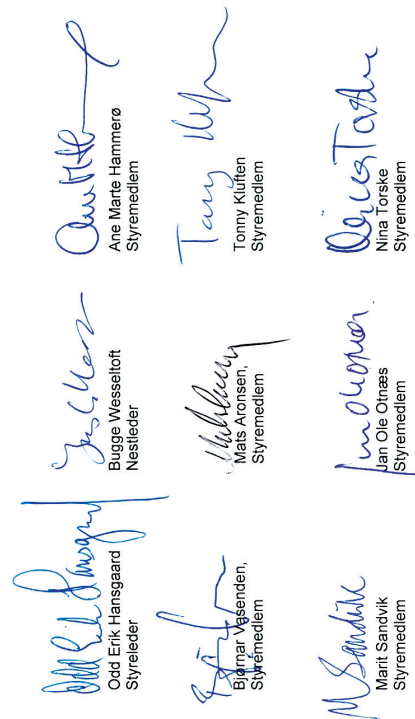 Odd Erik Hansgaard
Styreleder
Bugge Wesseltoft
Nestleder
Ane Marte Hammerø
Styremedlem
Bjørnar Vasenden,
Styremedlem
Mats Aronsen,
Styremedlem
Tonny Kluften
Styremedlem
M Sandvik
Marit Sandvik
Styremedlem
Jan Ole Otnæs
Styremedlem
Nina Torske
Nina Torske
Styremedlem